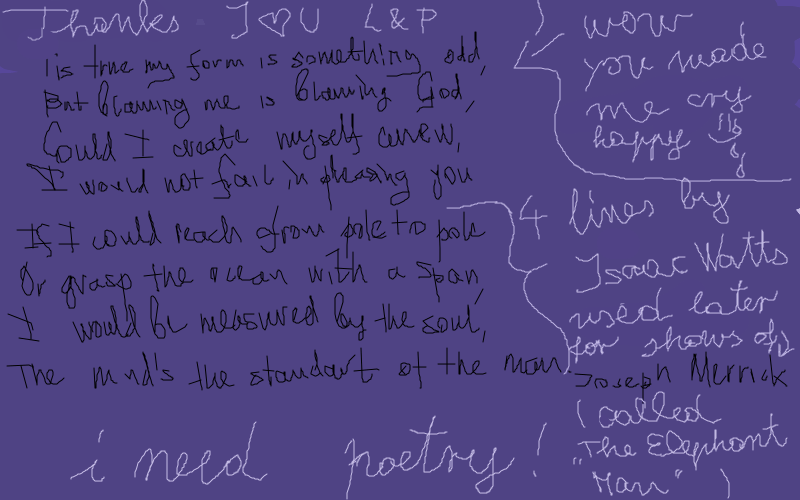 Thanks I ♡ U L & P
) wow
you made
me cry
happy
i is true my form is something odd,
But blaming me is blaming God,
Could I create myself anew,
I would not fail in pleasing you
If I could reach from pole to pole
Or grasp the ocean with a span,
I would be measured by the soul,
The mind's the standart of the man.
4 lines by
Isaac Watts
used later
for shows of
Joseph Merrick
( called
"The Elephant
Man" )
i need poetry!